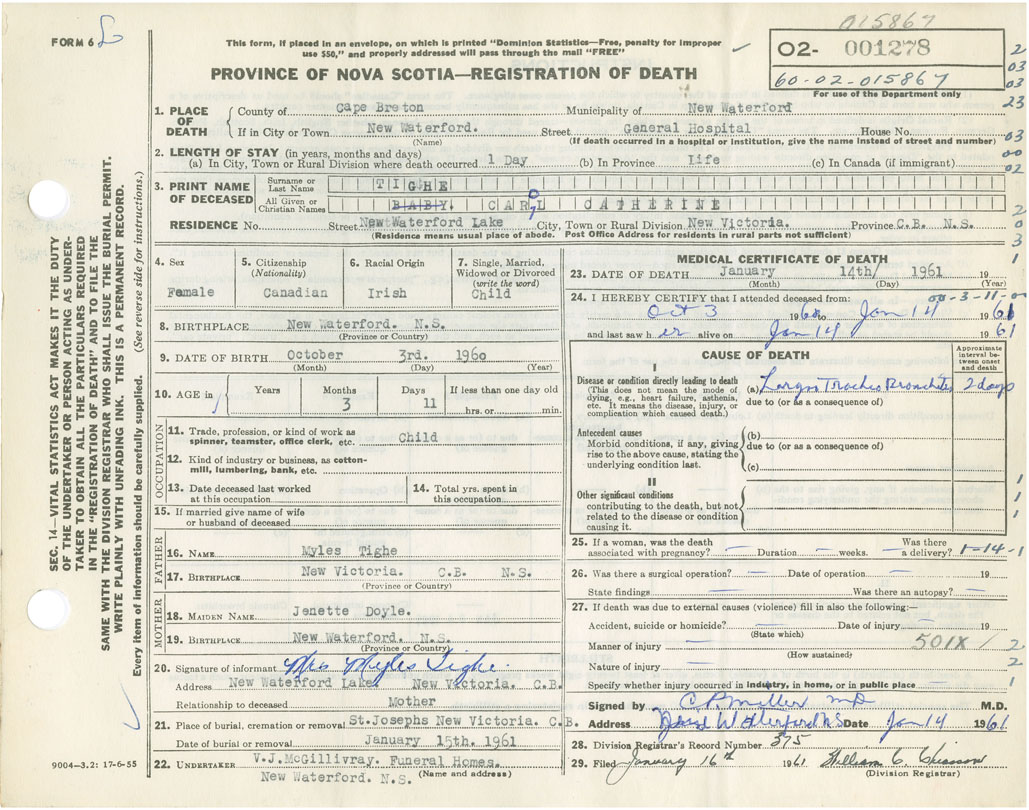 015867
FORM 6
This form, if placed in an envelope, on which is printed "Dominion Statistics—Free, penalty for improper
use $50," and properly addressed will pass through the mail "FREE"
02- 001278
60-02-015867
For use of the Department only
PROVINCE OF NOVA SCOTIA—REGISTRATION OF DEATH
1. PLACE OF DEATH County of Cape Breton Municipality of New Waterford
If in City or Town New Waterford. Street General Hospital House No.
(Name) (If death occurred in a hospital or institution, give the name instead of street and number)
2. LENGTH OF STAY (in years, months and days)
(a) In City, Town or Rural Division where death occurred 1 Day (b) In Province Life (c) In Canada (if immigrant)
3. PRINT NAME OF DECEASED Surname or Last Name TIGHE
All Given or Christian Names BABY. CAROL CATHERINE
RESIDENCE No. Street New Waterford Lake City, Town or Rural Division New Victoria. Province C.B. N.S.
(Residence means usual place of abode. Post Office Address for residents in rural parts not sufficient)
SEC. 14—VITAL STATISTICS ACT MAKES IT THE DUTY
OF THE UNDERTAKER OR PERSON ACTING AS UNDER-
TAKER TO OBTAIN ALL THE PARTICULARS REQUIRED
IN THE "REGISTRATION OF DEATH" AND TO FILE THE
SAME WITH THE DIVISION REGISTRAR WHO SHALL ISSUE THE BURIAL PERMIT.
WRITE PLAINLY WITH UNFADING INK. THIS IS A PERMANENT RECORD.
Every item of information should be carefully supplied. (See reverse side for instructions.)
4. Sex Female
5. Citizenship (Nationality) Canadian
6. Racial Origin Irish
7. Single, Married, Widowed or Divorced (write the word) Child
8. BIRTHPLACE New Waterford. N.S.
(Province or Country)
9. DATE OF BIRTH October 3rd. 1960
(Month) (Day) (Year)
10. AGE in Years Months 3 Days 11 If less than one day old hrs. or min.
OCCUPATION
11. Trade, profession, or kind of work as spinner, teamster, office clerk, etc. Child
12. Kind of industry or business, as cotton-mill, lumbering, bank, etc.
13. Date deceased last worked at this occupation
14. Total yrs. spent in this occupation
15. If married give name of wife or husband of deceased
FATHER
16. NAME Myles Tighe
17. BIRTHPLACE New Victoria. C.B. N.S.
(Province or Country)
MOTHER
18. MAIDEN NAME Jenette Doyle.
19. BIRTHPLACE New Waterford. N.S.
(Province or Country)
20. Signature of informant Mrs Myles Tighe.
Address New Waterford Lake New Victoria. C.B.
Relationship to deceased Mother
21. Place of burial, cremation or removal St.Josephs New Victoria. C.B.
Date of burial or removal January 15th. 1961
22. UNDERTAKER V.J.McGillivray. Funeral Homes.
New Waterford. N.S. (Name and address)
9004-3.2: 17-6-55
MEDICAL CERTIFICATE OF DEATH
23. DATE OF DEATH January 14th/ 1961 19
(Month) (Day) (Year)
24. I HEREBY CERTIFY that I attended deceased from: 00-3-11-0
Oct 3 1960 to Jan 14 1961
and last saw her alive on Jan 14 1961
CAUSE OF DEATH
Approximate interval between onset and death
I
Disease or condition directly leading to death (a) Laryngo Tracheo Bronchitis 2 days
(This does not mean the mode of dying, e.g., heart failure, asthenia, etc. It means the disease, injury, or complication which caused death.)
due to (or as a consequence of)
Antecedent causes (b)
Morbid conditions, if any, giving rise to the above cause, stating the underlying condition last.
due to (or as a consequence of)
(c)
II
Other significant conditions
contributing to the death, but not related to the disease or condition causing it.
25. If a woman, was the death associated with pregnancy? — Duration — weeks. Was there a delivery? — 1-14-1
26. Was there a surgical operation? — Date of operation — 19
State findings Was there an autopsy? —
27. If death was due to external causes (violence) fill in also the following:—
Accident, suicide or homicide? — Date of injury — 19
(State which)
Manner of injury — 501X
(How sustained)
Nature of injury —
Specify whether injury occurred in industry, in home, or in public place —
Signed by C. P. Miller MD M.D.
Address New Waterford NS Date Jan 14 1961
28. Division Registrar's Record Number 375
29. Filed January 16th 1961 William C. Chiasson
(Division Registrar)